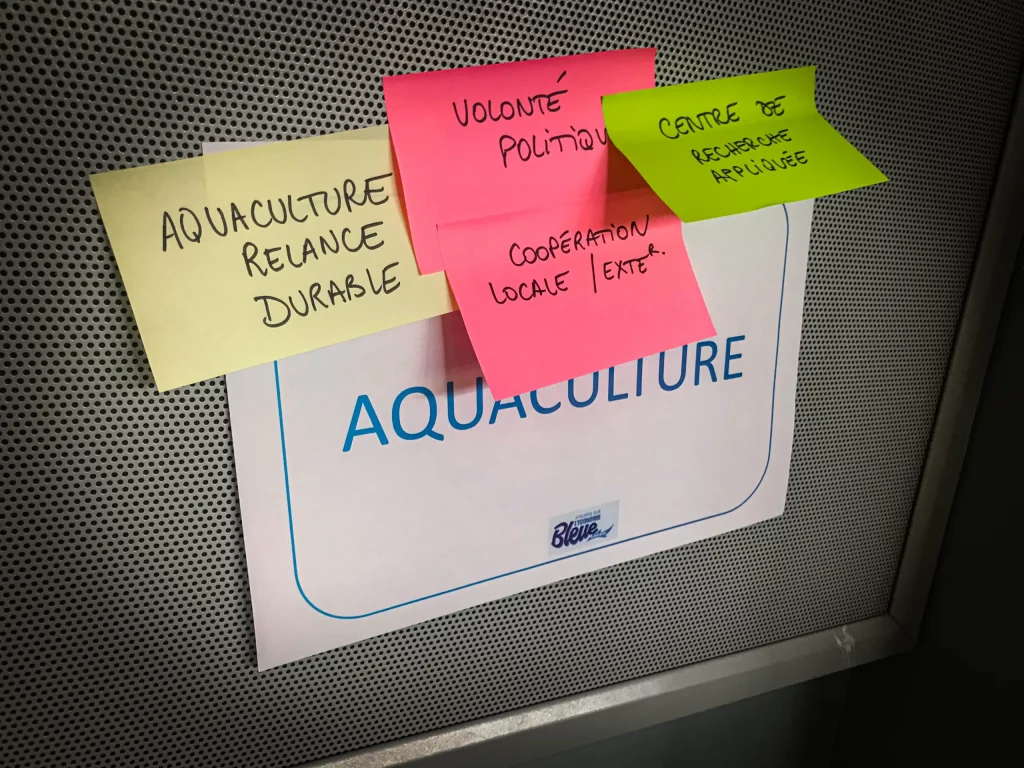 AQUACULTURE
RELANCE
DURABLE
VOLONTÉ
POLITIQU
CENTRE DE
RECHERCHE
APPLIQUÉE
COOPÉRATION
LOCALE / EXTER.
AQUACULTURE
L'ÉCONOMIE
Bleue